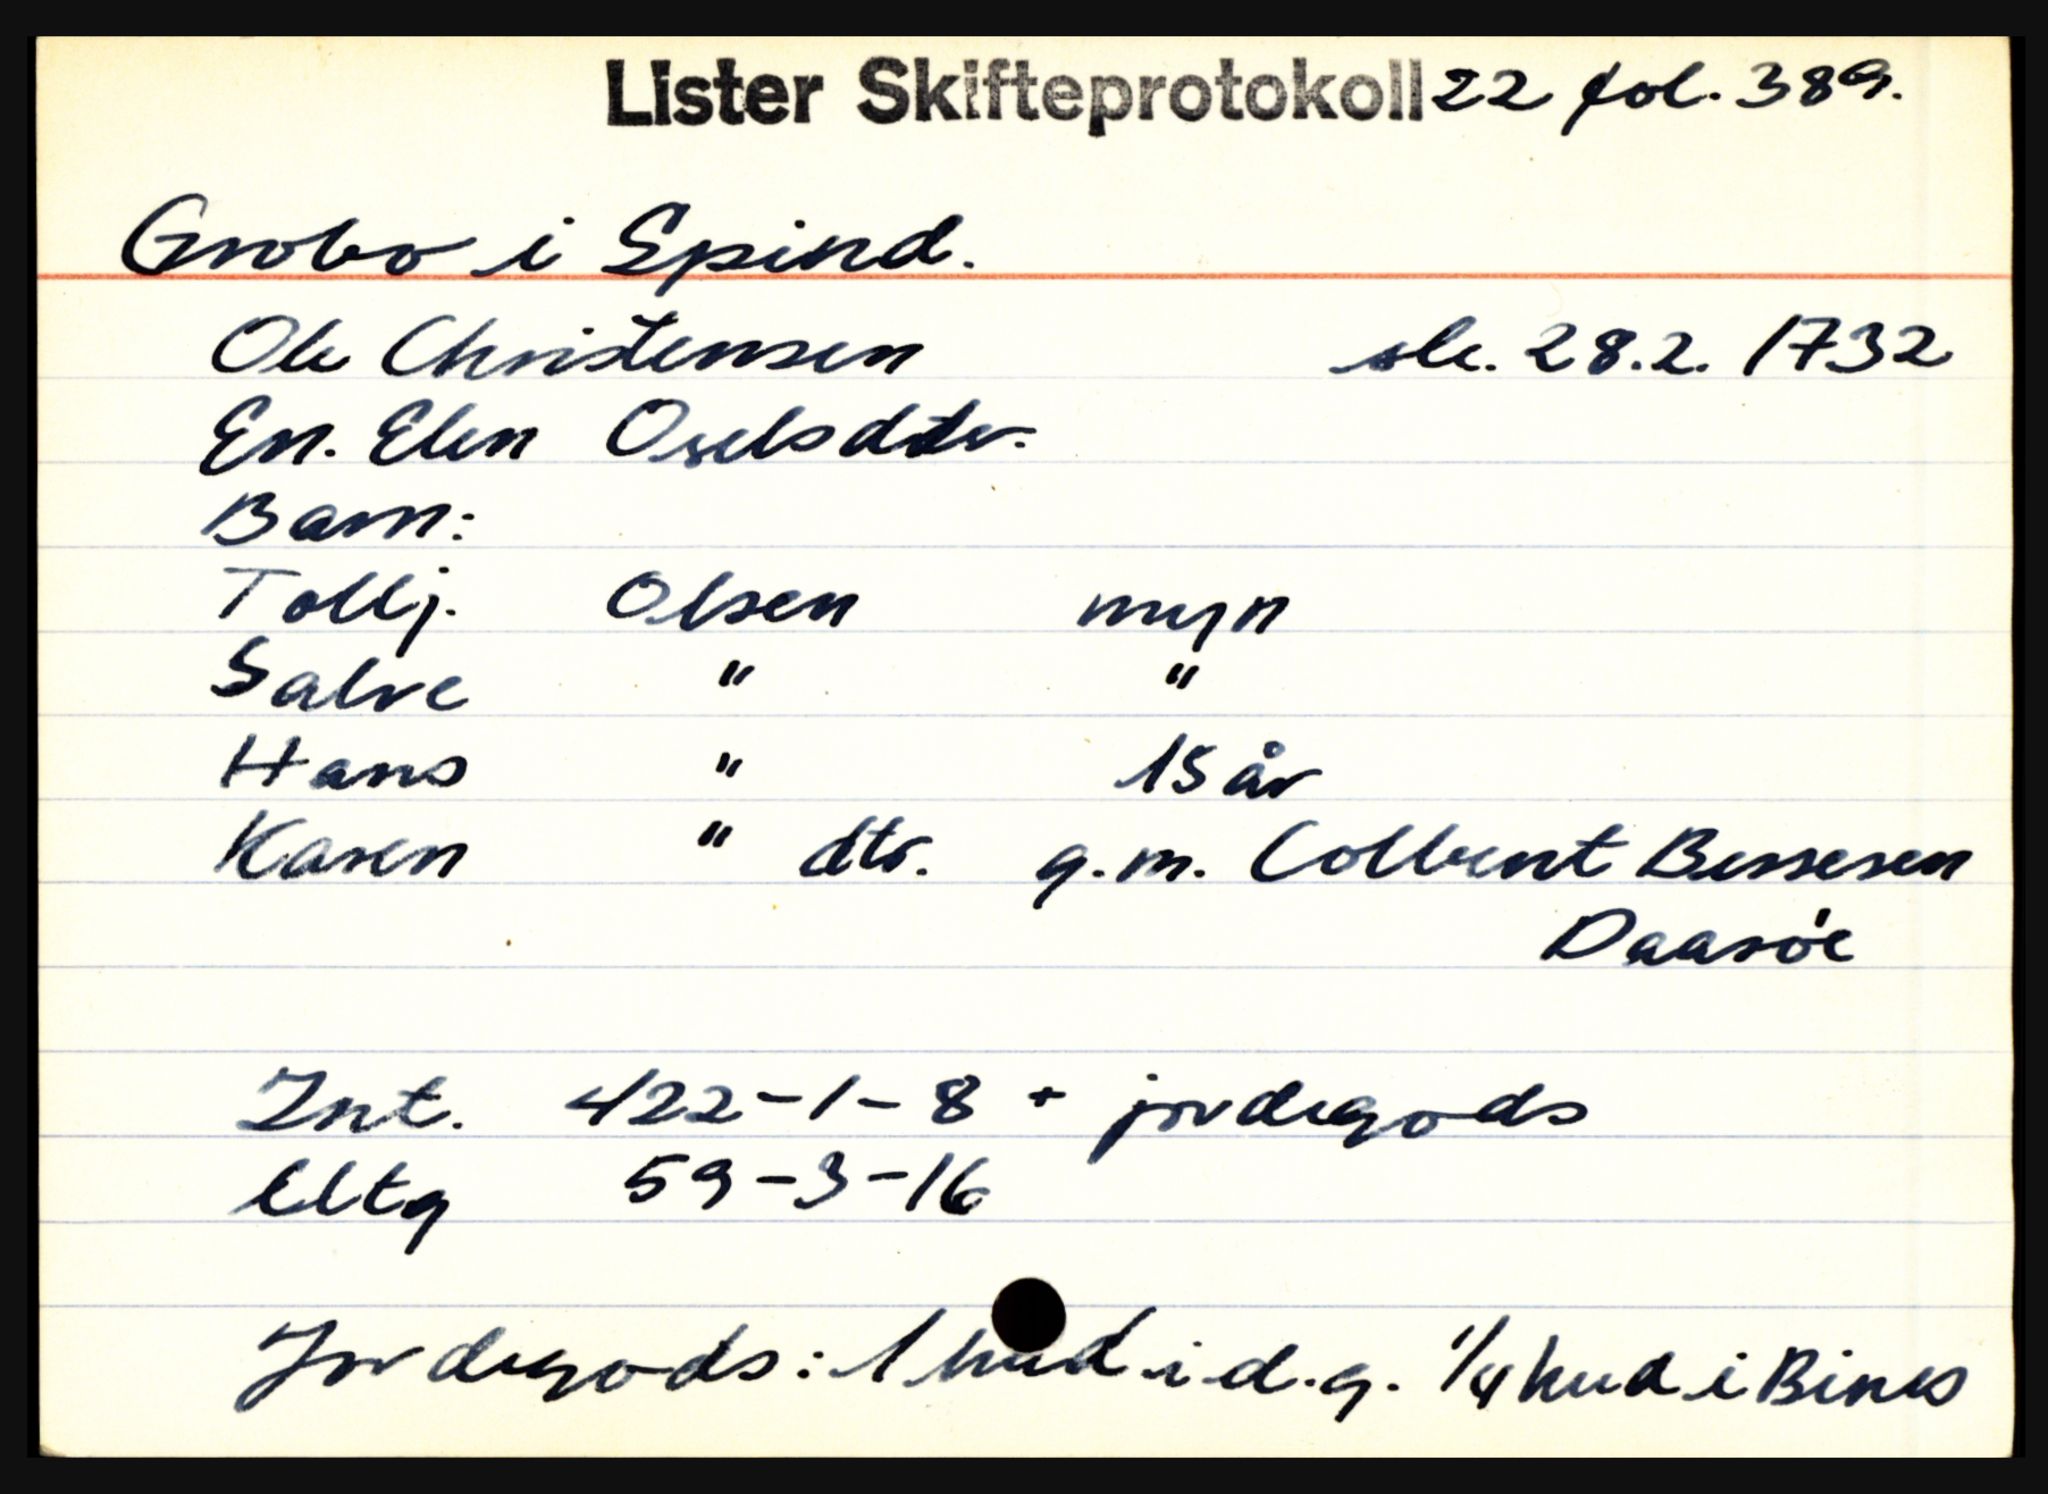 Lister Skifteprotokoll 22 fol. 389.
Grobo i Spind.
Ole Christensen sk. 28.2. 1732
En. Elen Osulsdtr.
Barn:
Tollj. Olsen myn
Salve " "
Hans " 15 år
Karen " dtr. g.m. Colbent Bessesen
Daasöe
Int. 422-1-8 + jordegods
Utg 59-3-16
Jordegods: 1 hud i d.g. 1/4 hud i Bines